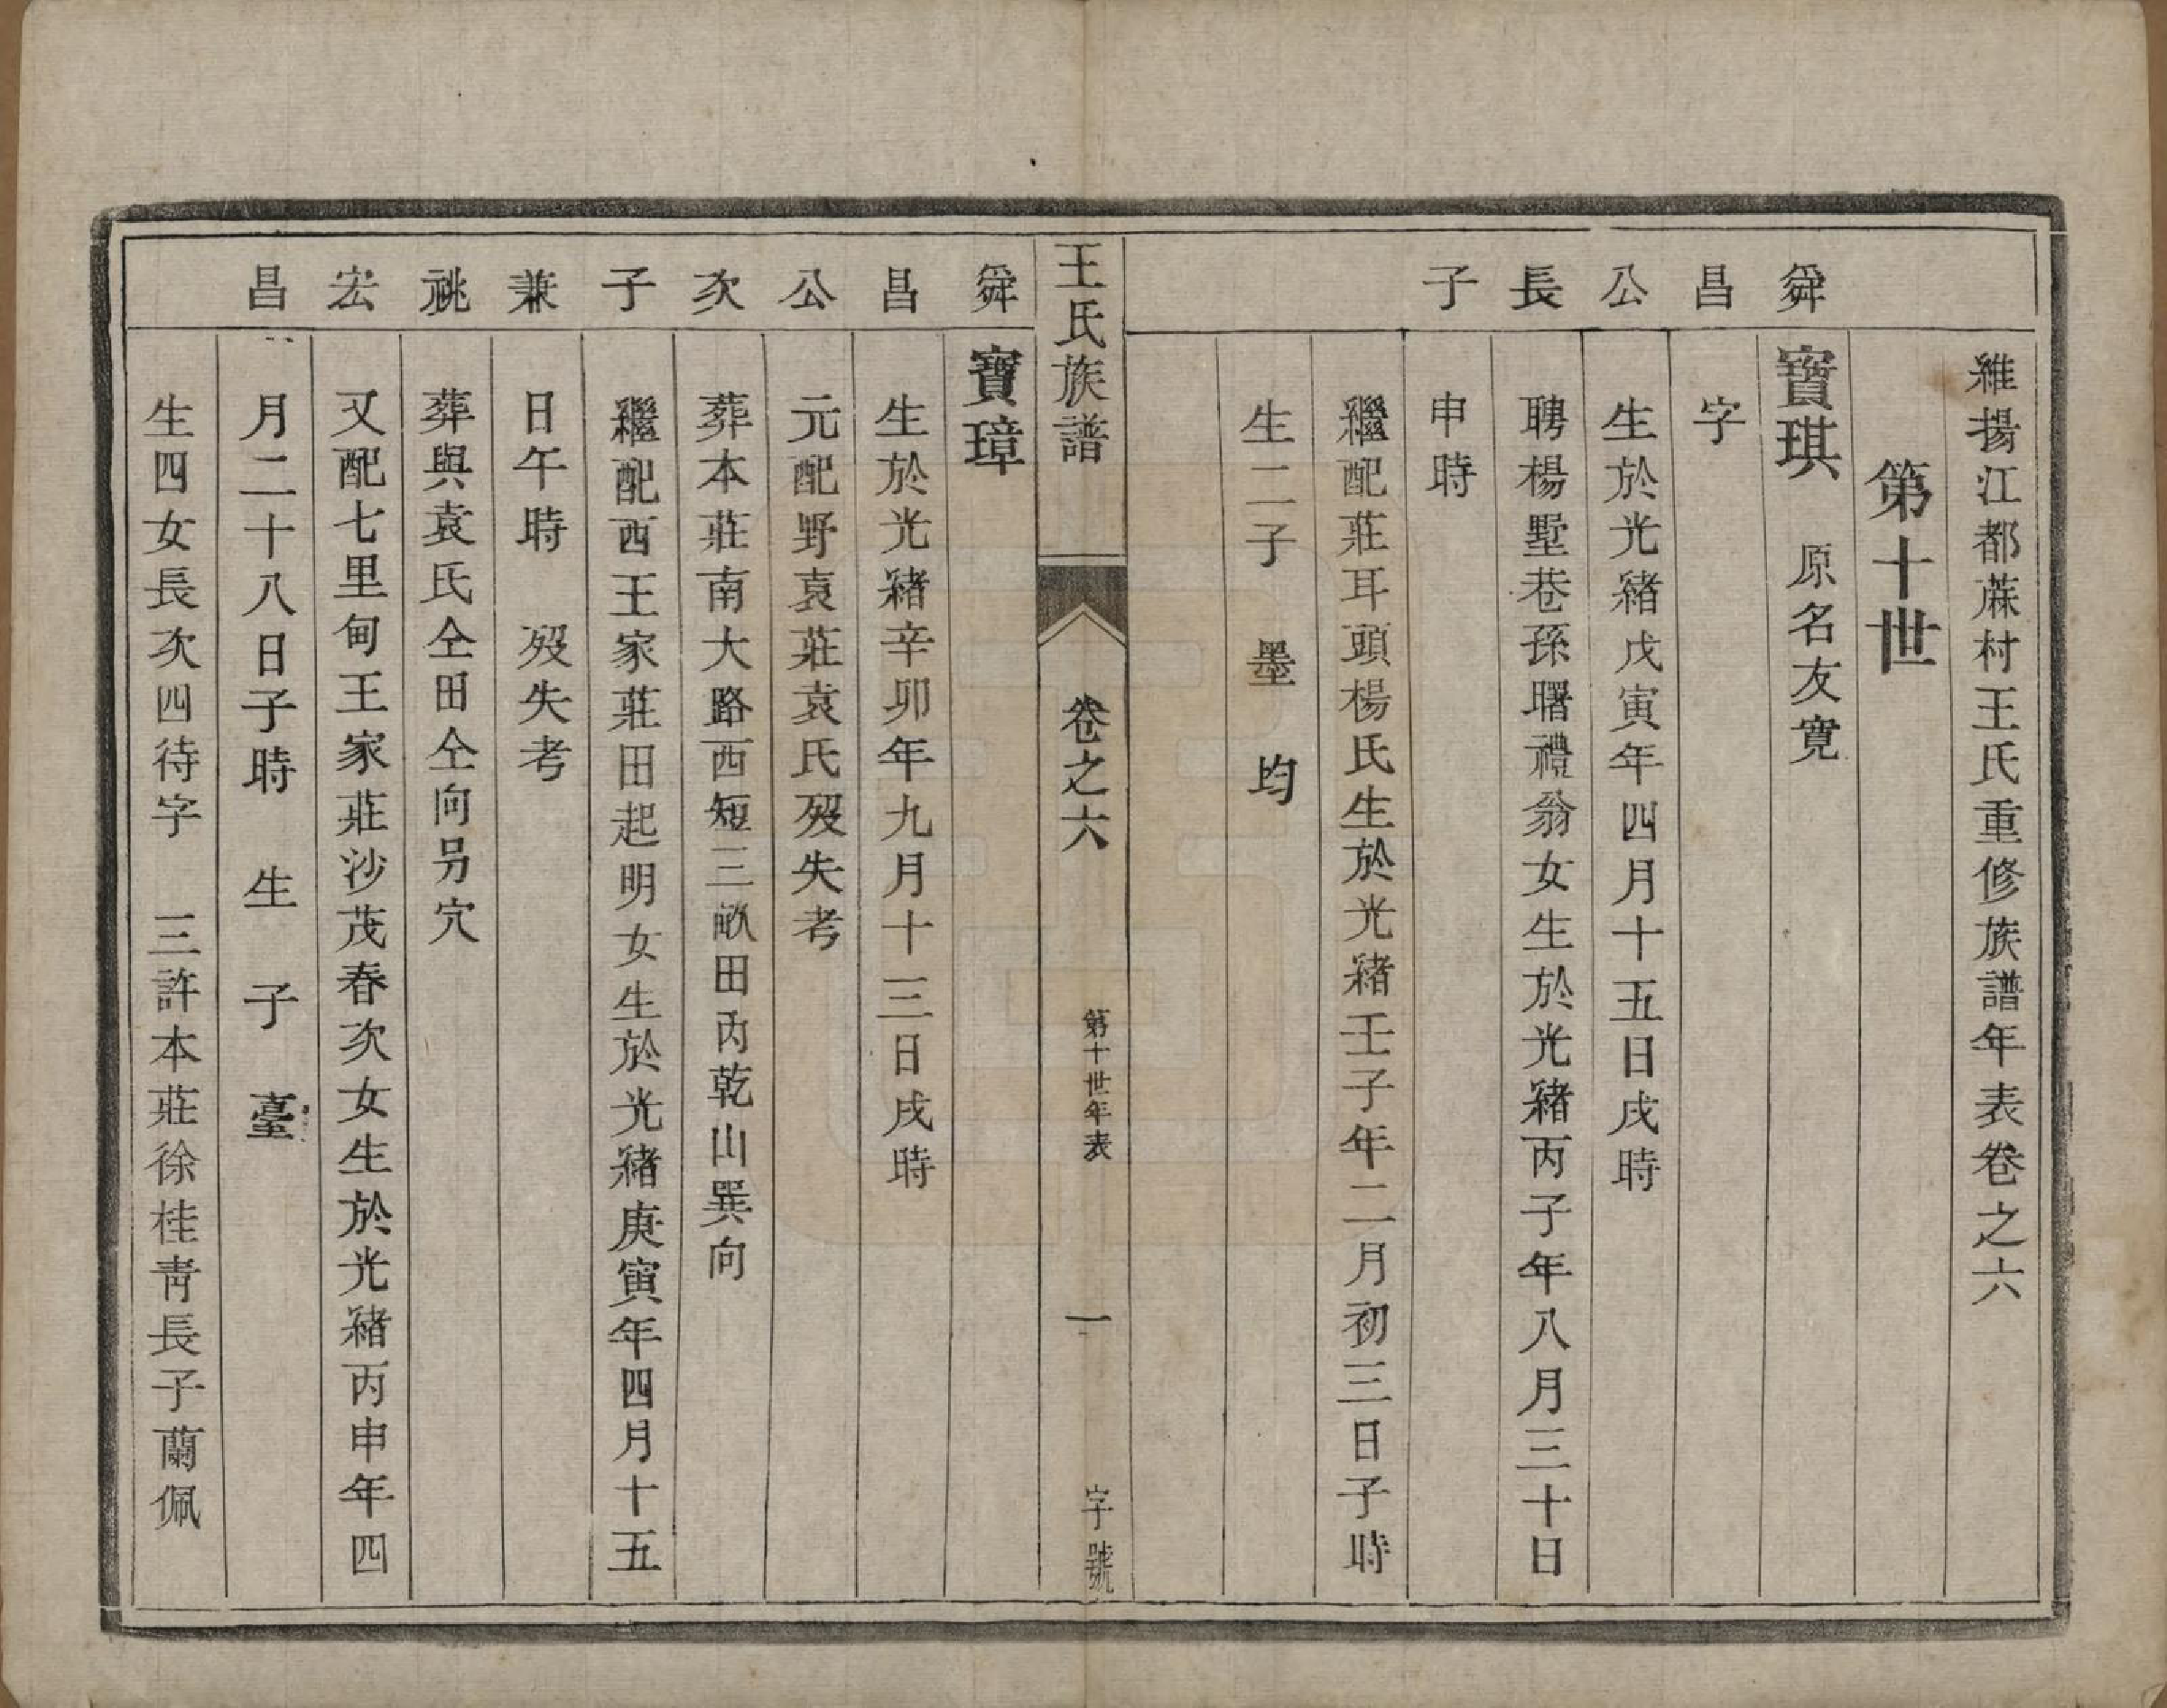 維揚江都蔴村王氏重修族譜年表卷之六
第十世
舜昌公長子
寳琪 原名友寬
字
生於光緒戊寅年四月十五日戌時
聘楊墅巷孫曙禮翁女生於光緒丙子年八月三十日
申時
繼配莊耳頭楊氏生於光緒壬子年二月初三日子時
生二子 墨 均
王氏族譜 卷之六 第十世年表 一 字號
舜昌公次子兼祧宏昌
寳璋
生於光緒辛卯年九月十三日戌時
元配野袁莊袁氏歿失考
葬本莊南大路西短三畝田內乾山巽向
繼配西王家莊田起明女生於光緒庚寅年四月十五
日午時 歿失考
葬與袁氏仝田仝向另穴
又配七里甸王家莊沙茂春次女生於光緒丙申年四
月二十八日子時 生子臺
生四女長次四待字 三許本莊徐桂靑長子蘭佩